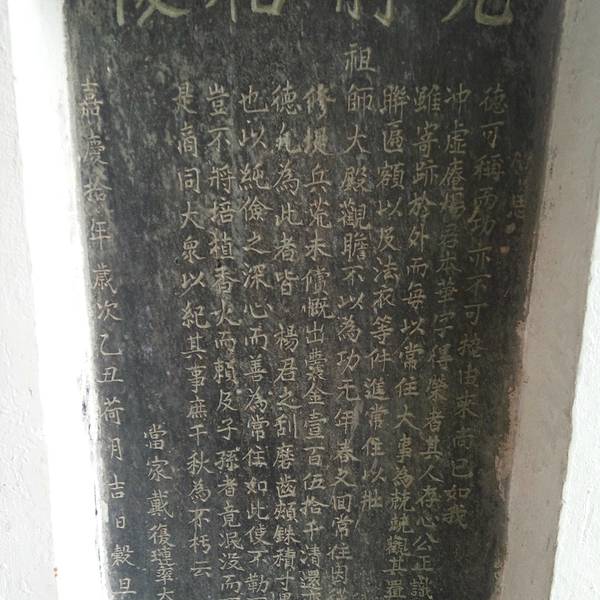 光前裕後
德可稱而功亦不可掩由來尚已如我
冲虛庵楊君本華字得榮者其人存心公正識
雖寄跡於外而每以常住大事為兢兢觀其置
聯匾額以及法衣等件進常住以壯
祖師大殿觀瞻不以為功元年春又回常住因
修提兵荒未償慨出囊金壹百伍拾千清還
德凡為此者皆 楊君之刮磨齒頰銖積寸累
也以純儉之深心而善為常住如此使不勒
豈不將培植香火而賴及子孫者竟泯没而
是商同大衆以紀其事庶千秋為不朽云
當家戴復璉率大
嘉慶拾年歲次乙丑荷月吉日穀旦